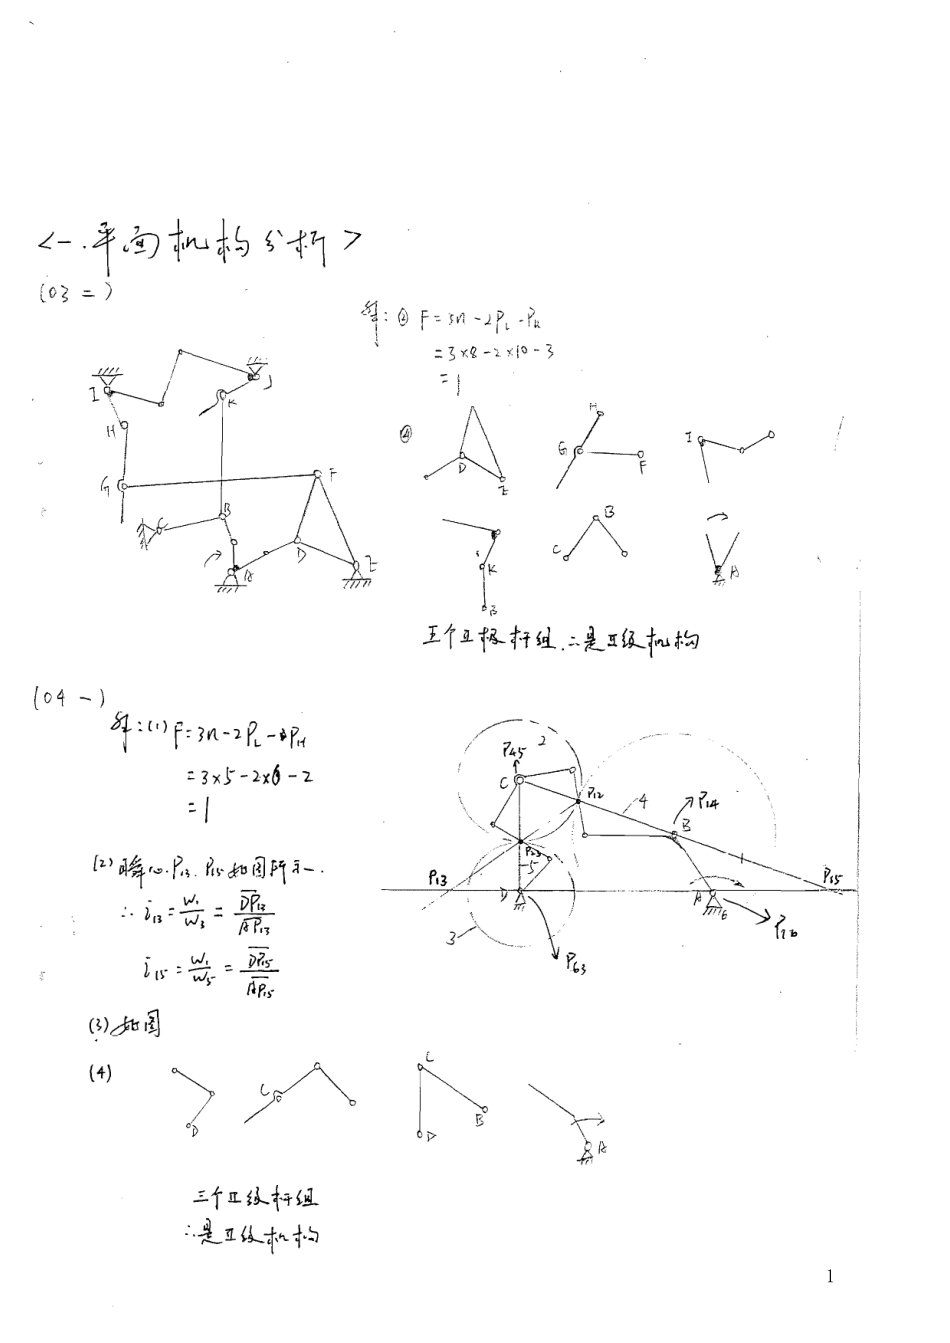 <一.平面机构分析>
(03 二)
解:② F=3n-2PL-PH
=3×8-2×10-3
=1
④
I
J
K
H
G
F
B
C
A
D
E
D
E
H
G
F
I
K
B
B
C
A
五个Ⅱ级杆组,∴是Ⅱ级机构
(04 一)
解:(1) F=3n-2PL-PH
=3×5-2×6-2
=1
(2)瞬心P13、P15如图所示.
∴ i13=W1/W3=DP13/AP13
i15=W1/W5=DP15/AP15
P45
2
C
P12
4
P14
B
P23
1
P13
5
P15
D
A
6
P16
3
P63
(3)如图
(4)
D
C
C
D
B
A
三个Ⅱ级杆组
∴是Ⅱ级机构
1